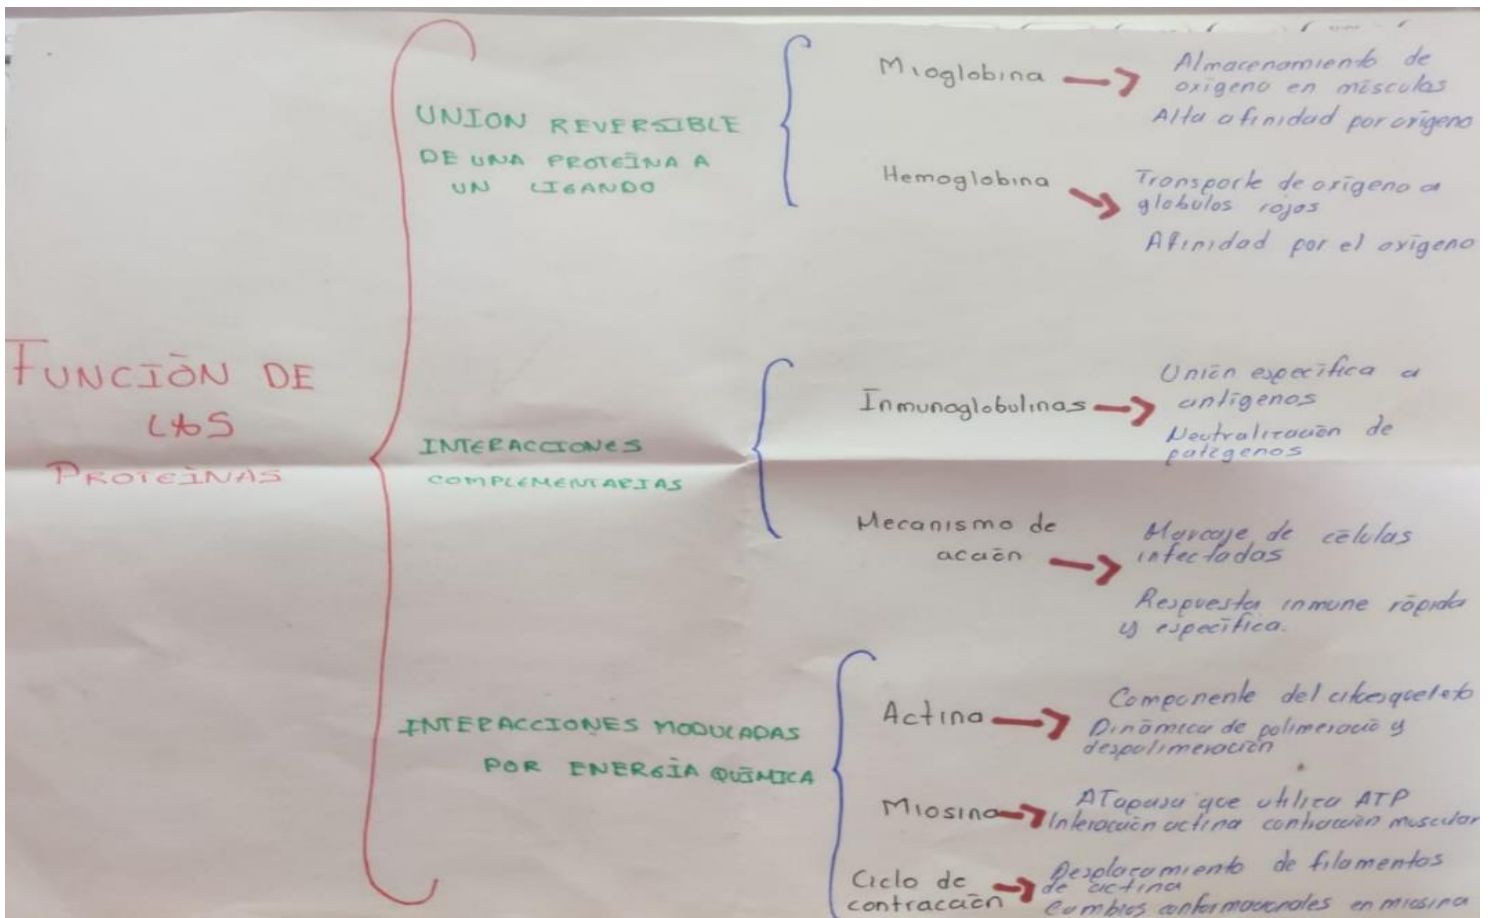 FUNCIÓN DE
LAS
PROTEÍNAS
UNION REVERSIBLE
DE UNA PROTEÍNA A
UN LIGANDO
Mioglobina
Almacenamiento de
oxigeno en músculos
Alta afinidad por oxigeno
Hemoglobina
Transporte de oxigeno a
glóbulos rojos
Afinidad por el oxígeno
INTERACCIONES
COMPLEMENTARIAS
Inmunoglobulinas
Unión específica a
antígenos
Neutralización de
patógenos
Mecanismo de
acción
Marcaje de células
infectadas
Respuesta inmune rápida
y específica.
INTERACCIONES MODULADAS
POR ENERGÍA QUÍMICA
Actina
Componente del citoesqueleto
Dinámica de polimeració y
despolimeración
Miosina
que utiliza ATP
Interacción actina contracción muscular
Ciclo de
contracción
Desplacamiento de filamentos
de actina
Cambios conformacionales en miosina